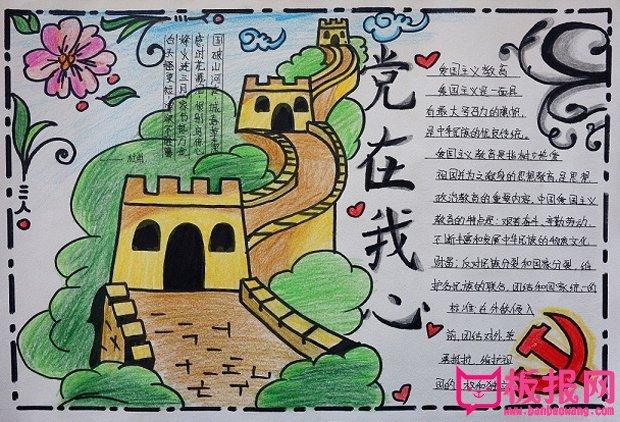 国破山河在 城春草木深
感时花溅泪 恨别鸟惊心
烽火连三月 家书抵万金
白头搔更短 浑欲不胜簪
——杜甫
党在我心
爱国主义教育
爱国主义是一面具
有最大号召力的旗帜,
是中华民族的优良传统。
爱国主义教育是指树立热爱
祖国并为之献身的思想教育,是思想
政治教育的重要内容。中国爱国主义
教育的特点是:艰苦奋斗、辛勤劳动,
不断丰富和发展中华民族的物质文化
财富;反对民族分裂和国家分裂,维
护各民族的联合、团结和国家统一的
标准;在外敌侵入
前,团结对外,英
勇抵抗,维护祖
国的 权和独
板报网
www.banbaowang.com